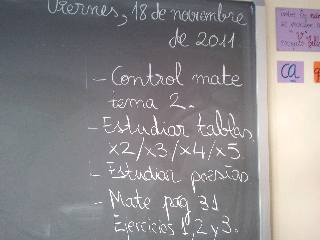 Viernes, 18 de noviembre
de 2011
- Control mate
tema 2.
- Estudiar tablas
x2/x3/x4/x5
- Estudiar poesías
- Mate pág 31
Ejercicios 1, 2 y 3.
ca